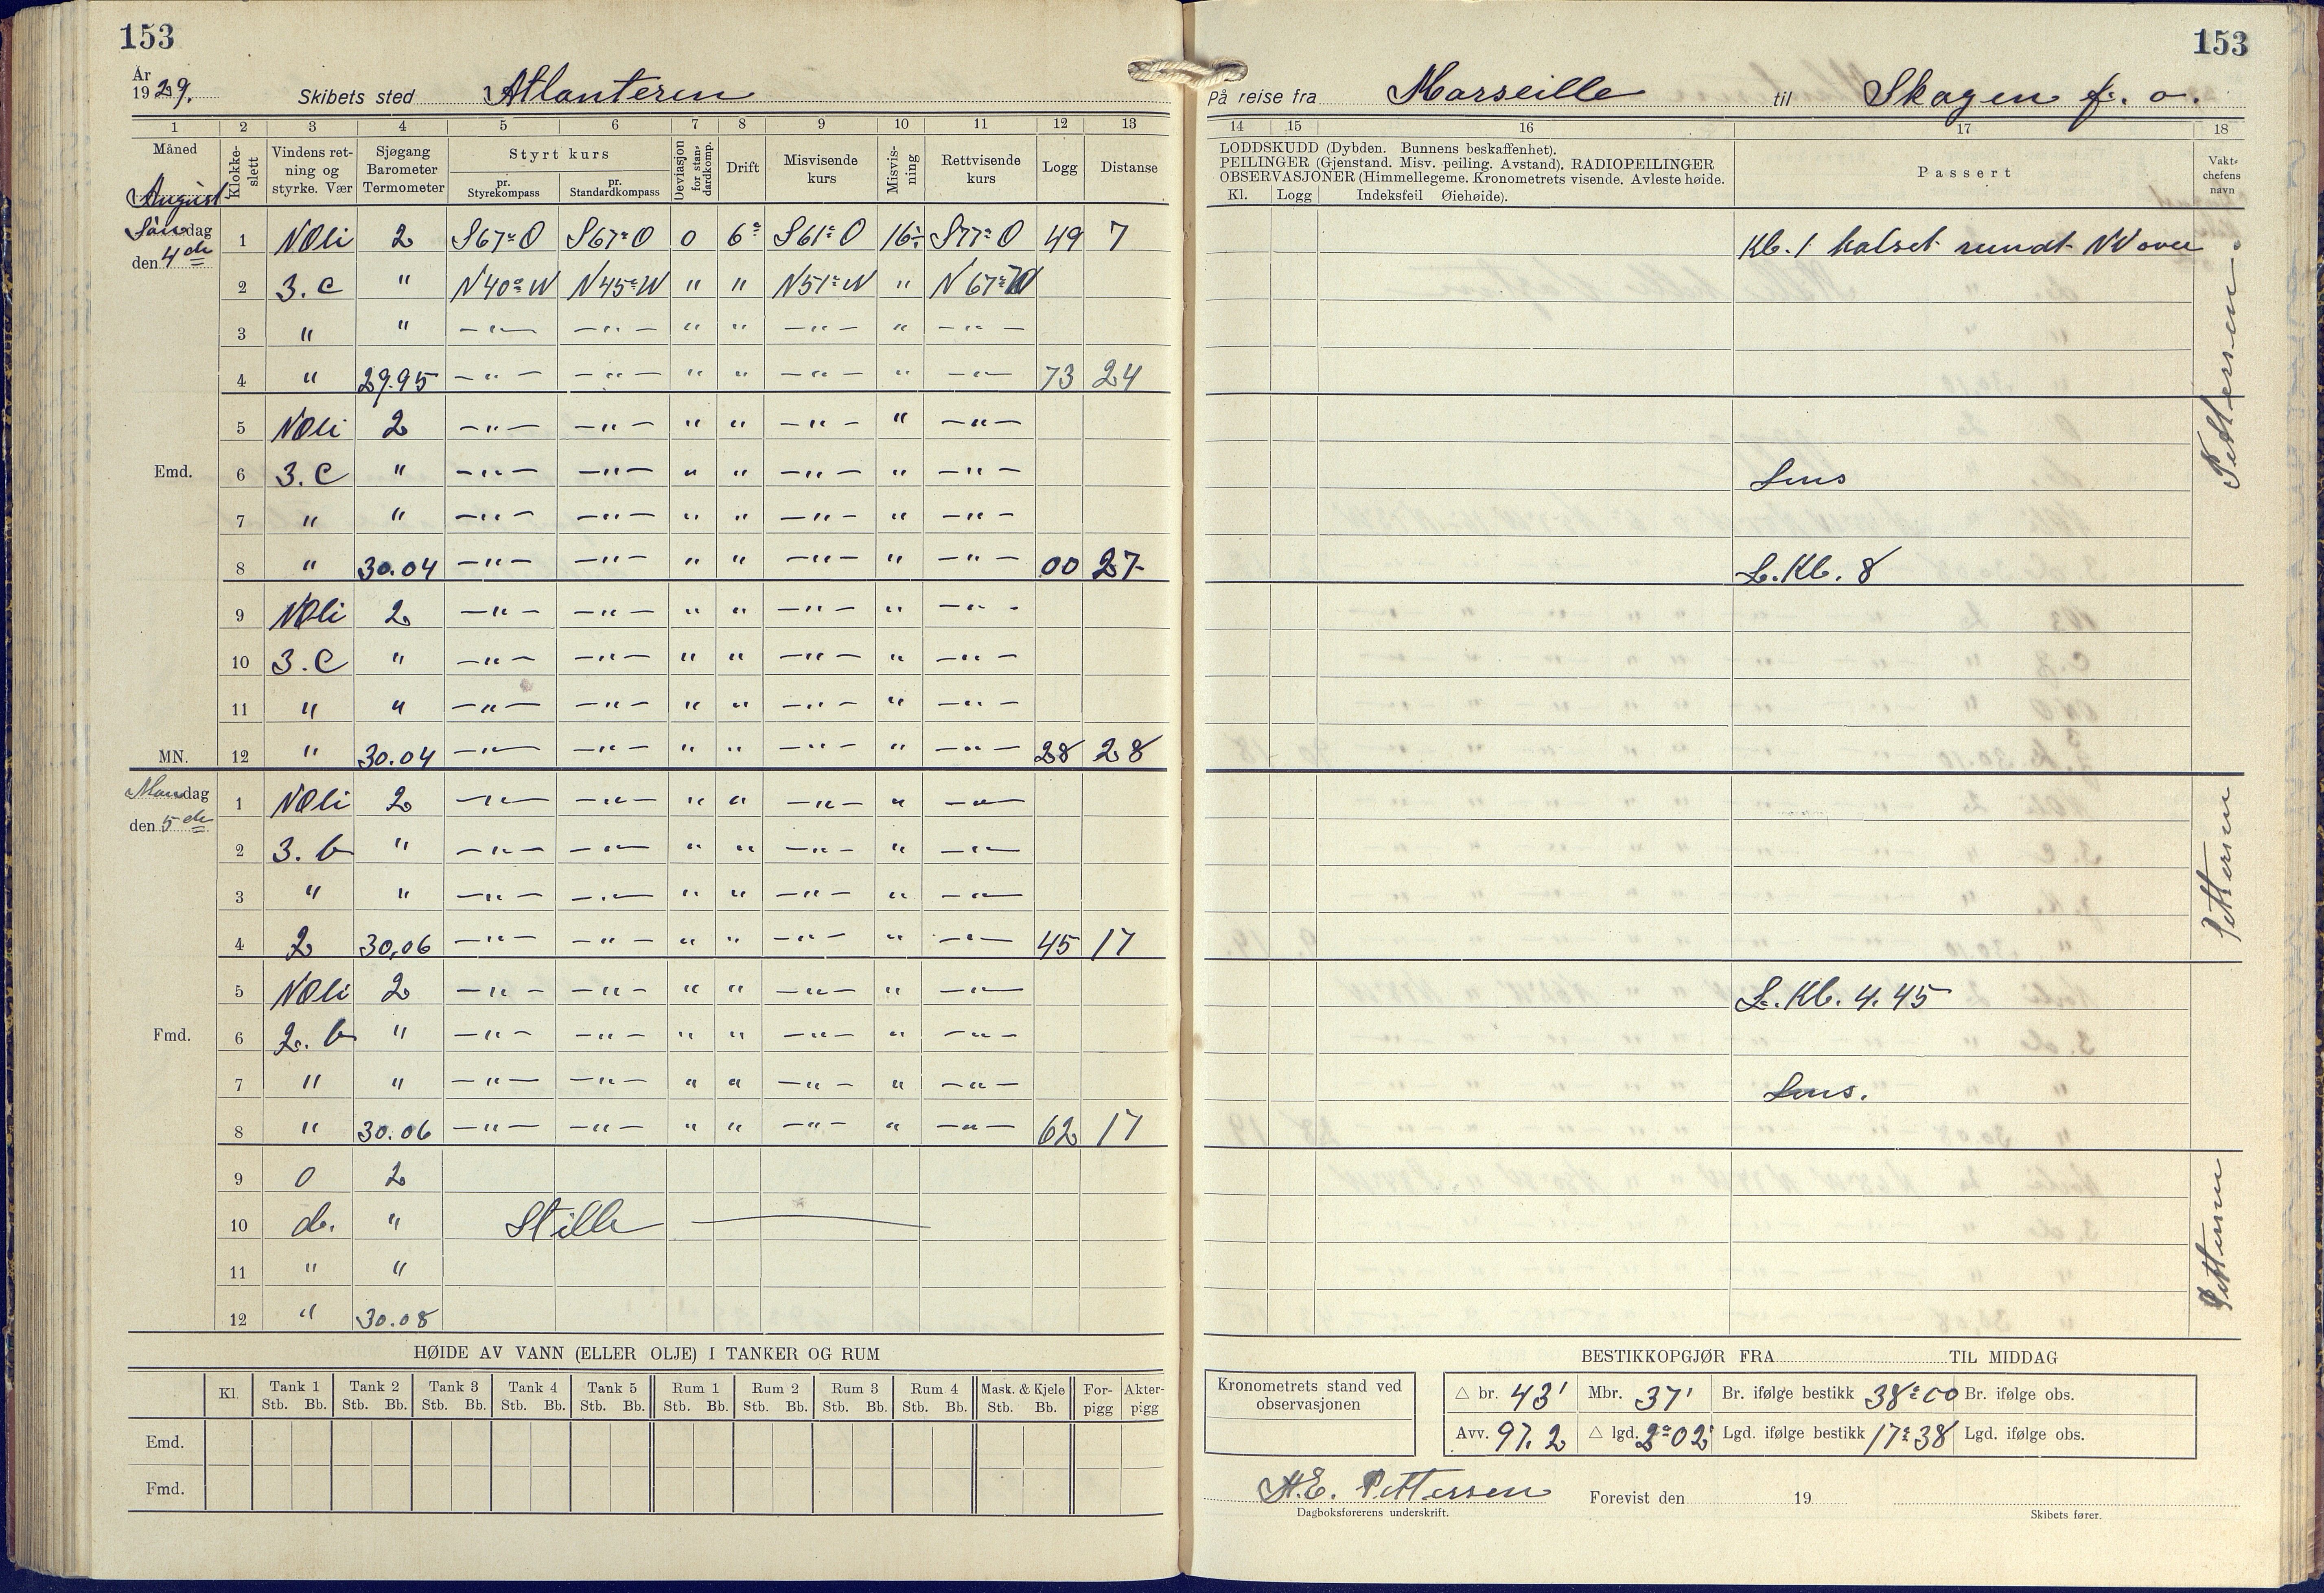 153
153
År
1929. Skibets sted Atlanteren På reise fra Marseille til Skagen f. o.
1 2 3 4 5 6 7 8 9 10 11 12 13 14 15 16 17 18
Måned Klokkeslett Vindens retning og styrke. Vær Sjøgang Barometer Termometer Styrt kurs pr. Styrekompass pr. Standardkompass Deviasjon for standardkomp. Drift Misvisende kurs Misvisning Rettvisende kurs Logg Distanse
LODDSKUDD (Dybden. Bunnens beskaffenhet).
PEILINGER (Gjenstand. Misv. peiling. Avstand). RADIOPEILINGER
OBSERVASJONER (Himmellegeme. Kronometrets visende. Avleste høide.
Kl. Logg Indeksfeil Øiehøide).
Passert
Vaktchefens navn
August
Søndag den 4de
1 NOli 2 S67°O S67°O 0 6° S61°O 16÷ S77°O 49 7 Kl. 1 halset rundt NV over
2 3. c " N40°W N45°W " " N51°W " N67°W
3 " " —"— —"— " " —"— " —"—
4 " 29.95 —"— —"— " " —"— " —"— 73 24
5 NOli 2 —"— —"— " " —"— " —"—
Emd. 6 3. c " —"— —"— " " —"— " —"— Lens
7 " " —"— —"— " " —"— " —"—
8 " 30.04 —"— —"— " " —"— " —"— 00 27 L. Kl. 8
Pettersen
9 NOli 2 —"— —"— " " —"— " —"—
10 3. c " —"— —"— " " —"— " —"—
11 " " —"— —"— " " —"— " —"—
MN. 12 " 30.04 —"— —"— " " —"— " —"— 28 28
Mandag den 5de
1 NOli 2 —"— —"— " " —"— " —"—
2 3. b " —"— —"— " " —"— " —"—
3 " " —"— —"— " " —"— " —"—
4 2 30.06 —"— —"— " " —"— " —"— 45 17
Pettersen
5 NOli 2 —"— —"— " " —"— " —"— L. Kl. 4.45
Fmd. 6 2. b " —"— —"— " " —"— " —"—
7 " " —"— —"— " " —"— " —"— Lens.
8 " 30.06 —"— —"— " " —"— " —"— 62 17
9 0 2
10 b. " Stille
11 " "
12 " 30.08
Pettersen
HØIDE AV VANN (ELLER OLJE) I TANKER OG RUM
Kl. Tank 1 Tank 2 Tank 3 Tank 4 Tank 5 Rum 1 Rum 2 Rum 3 Rum 4 Mask. & Kjele Forpigg Akterpigg
Stb. Bb. Stb. Bb. Stb. Bb. Stb. Bb. Stb. Bb. Stb. Bb. Stb. Bb. Stb. Bb. Stb. Bb. Stb. Bb.
Emd.
Fmd.
BESTIKKOPGJØR FRA TIL MIDDAG
Kronometrets stand ved observasjonen
△ br. 43' Mbr. 37' Br. ifølge bestikk 38°00 Br. ifølge obs.
Avv. 97.2 △ lgd. 2°02' Lgd. ifølge bestikk 17°38 Lgd. ifølge obs.
H.E. Pettersen Forevist den 19
Dagboksførerens underskrift. Skibets fører.